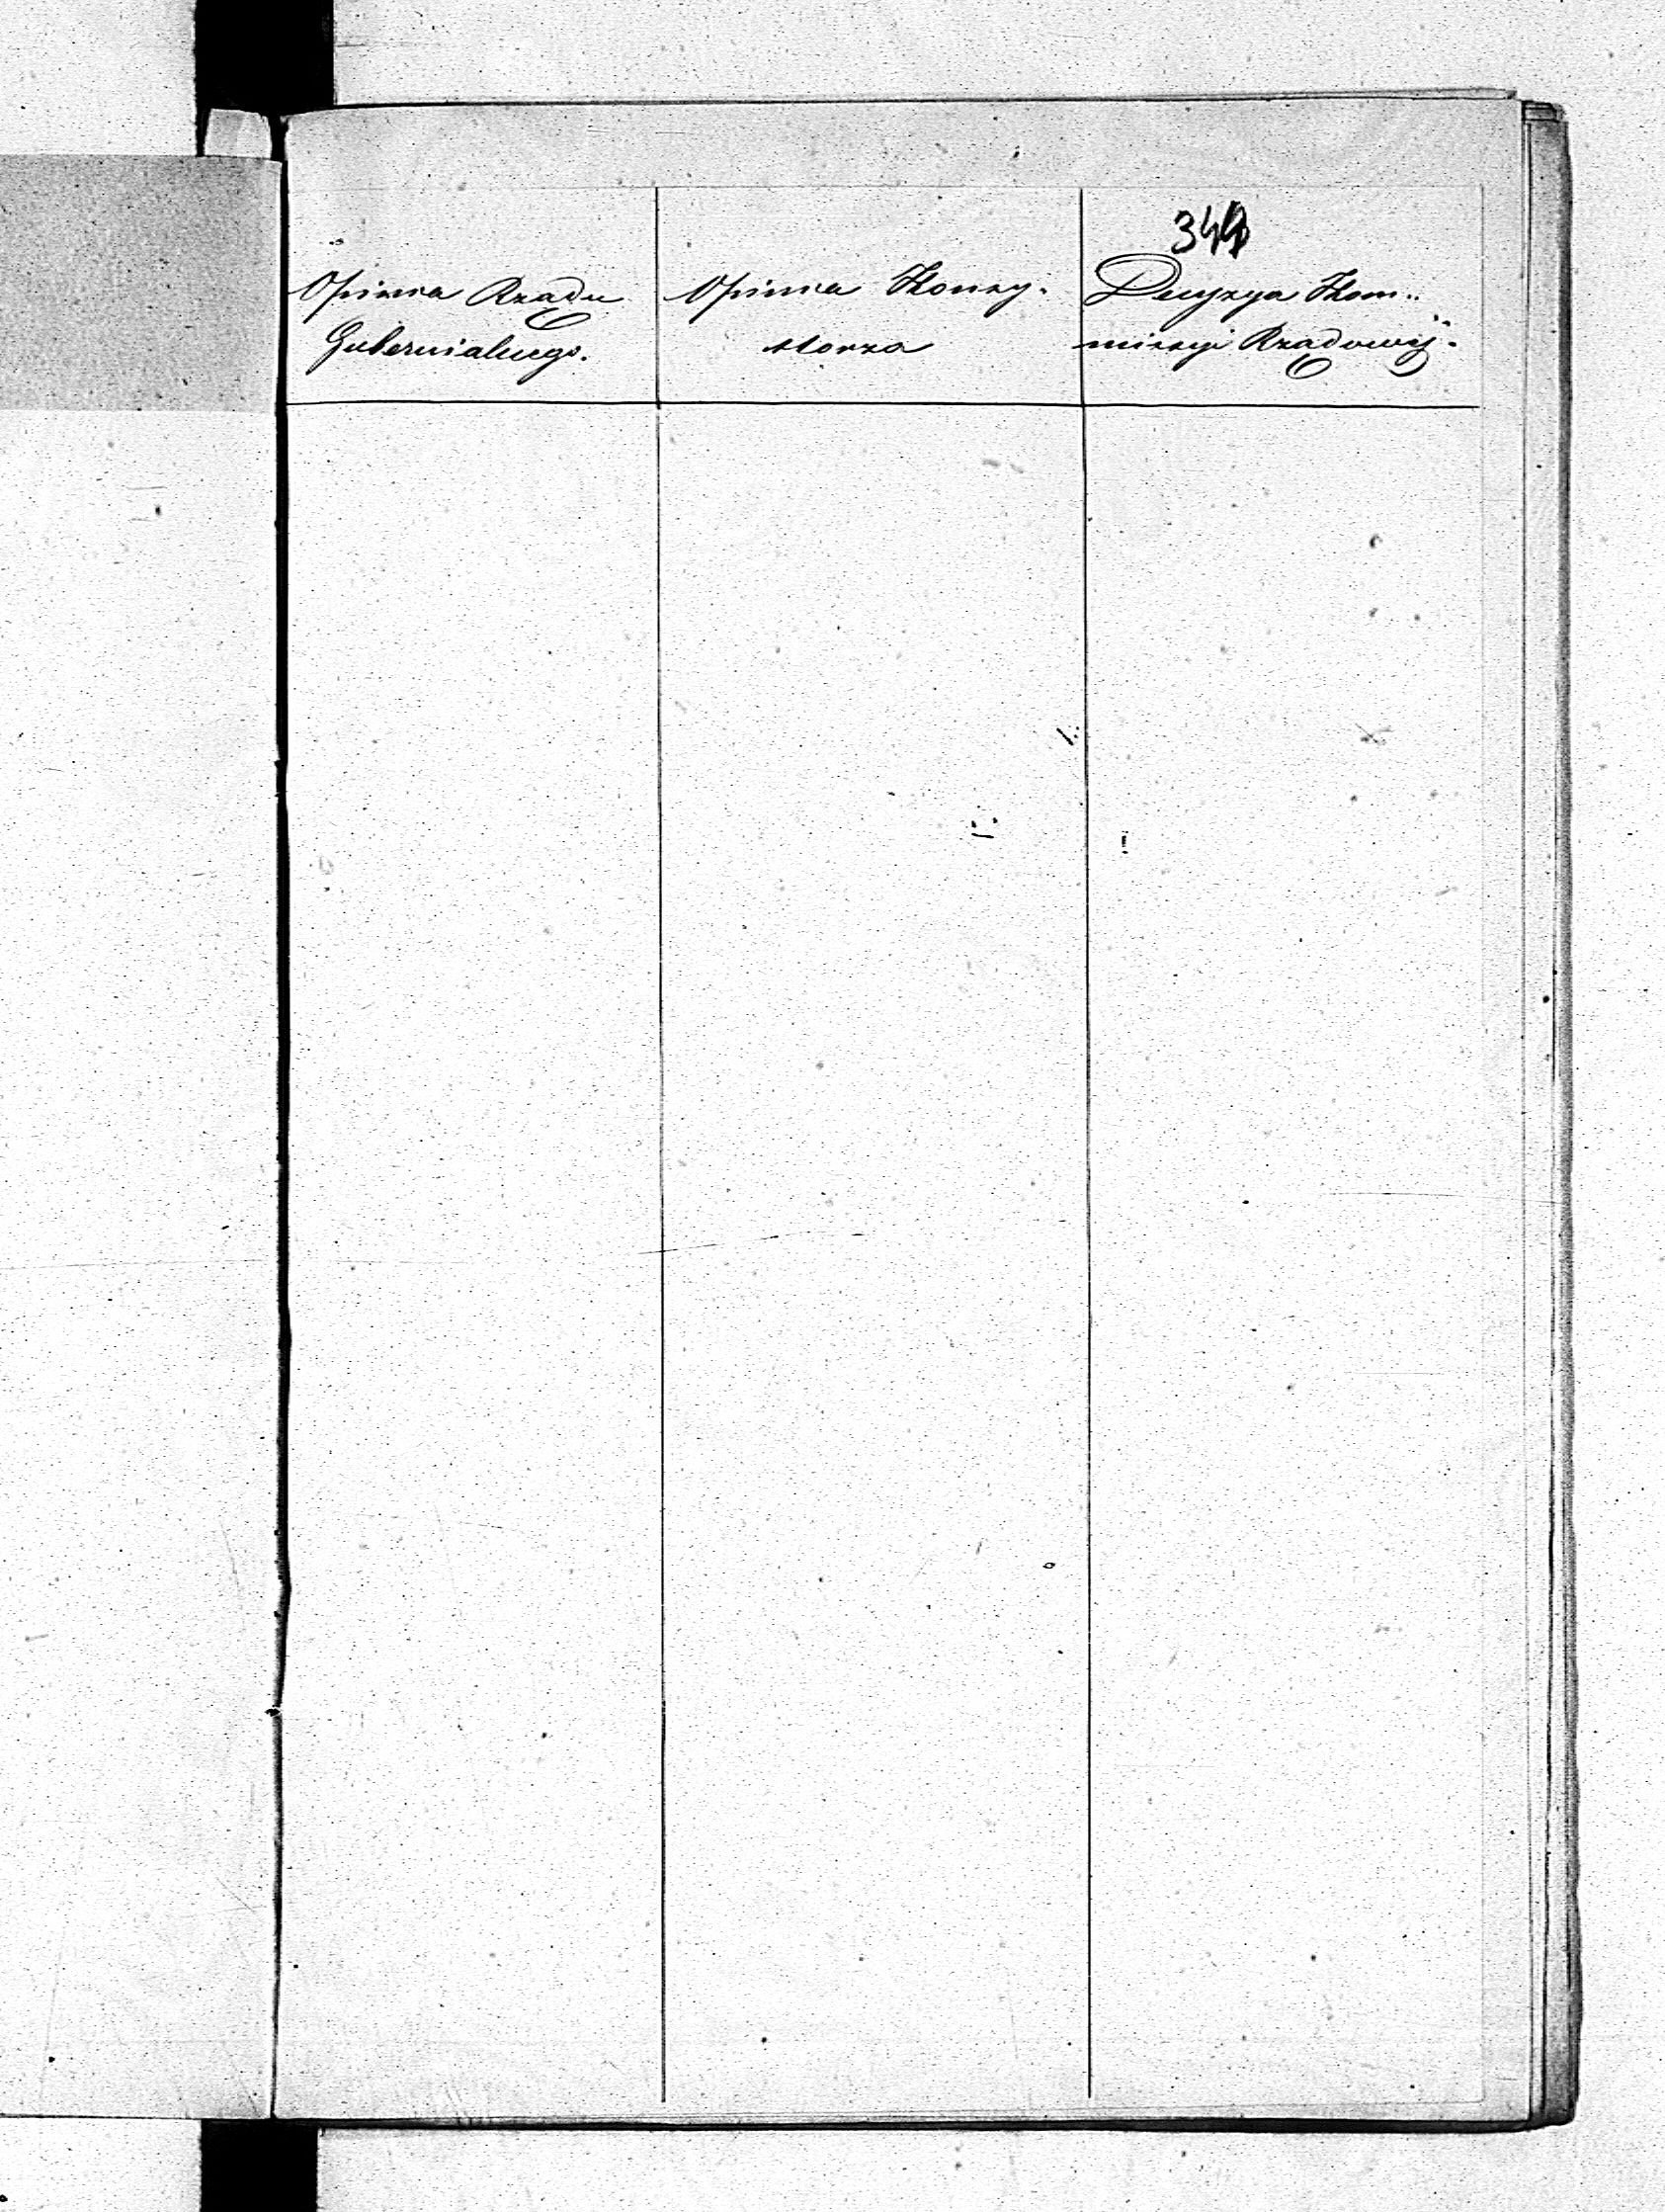 Opinia Rządu
Gubernialnego.
Opinia Konsy-
storza
Decyzya Kom-
missyi Rządowej.